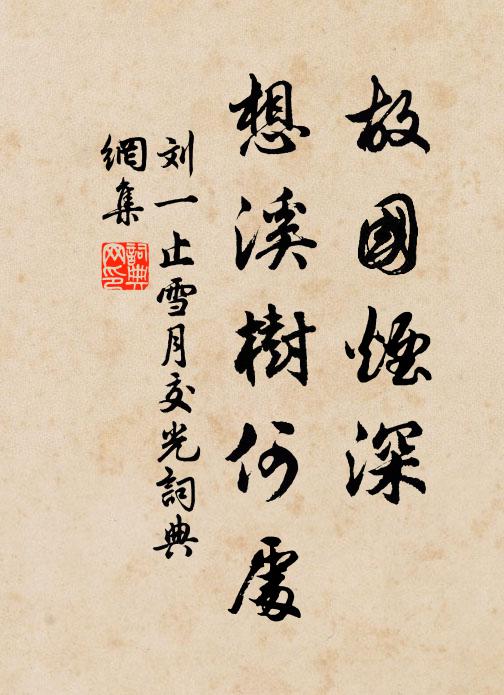 故國煙深
想溪樹何處
刘一止雪月交光詞典
網集
詞典网印